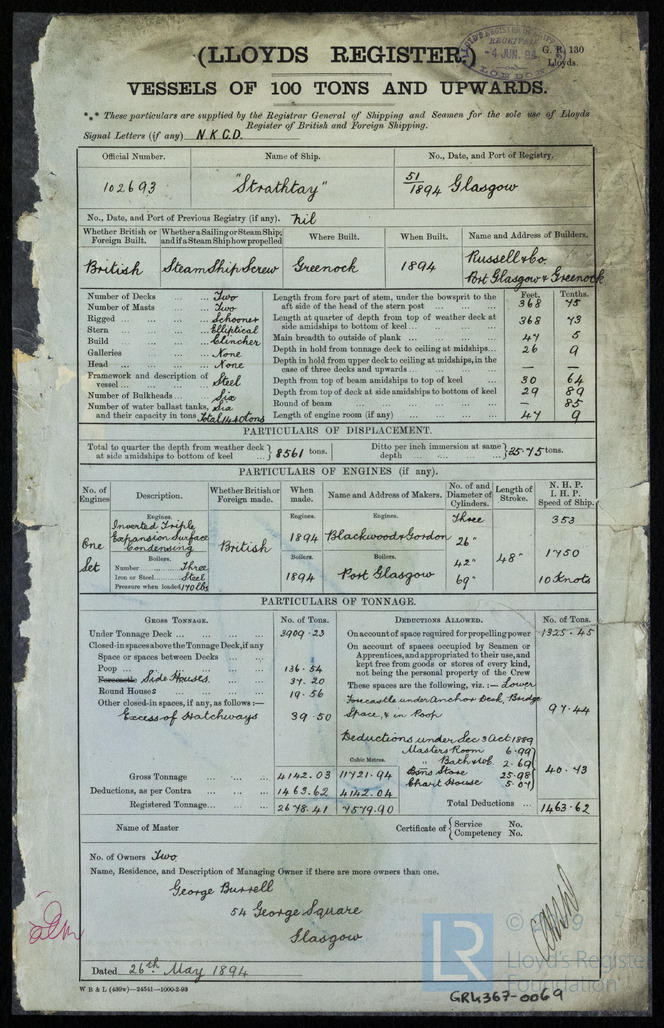 (LLOYDS REGISTER.)
LLOYD'S REGISTER OF SHIPPING
RECEIVED
4 JUN. 94
LONDON
G. R. 130
Lloyds.
VESSELS OF 100 TONS AND UPWARDS.
*** These particulars are supplied by the Registrar General of Shipping and Seamen for the sole use of Lloyds
Register of British and Foreign Shipping.
Signal Letters (if any) N.K.C.D.
Official Number. Name of Ship. No., Date, and Port of Registry.
102693 "Strathtay" 51/1894 Glasgow
No., Date, and Port of Previous Registry (if any). Nil
Whether British or Foreign Built. Whether a Sailing or Steam Ship; and if a Steam Ship how propelled Where Built. When Built. Name and Address of Builders.
British Steam Ship Screw Greenock 1894 Russell & Co. Port Glasgow & Greenock
Feet. Tenths.
Number of Decks ... ... Two
Number of Masts ... ... Two
Rigged ... ... ... Schooner
Stern ... ... ... Elliptical
Build ... ... ... Clincher
Galleries ... ... None
Head ... ... ... None
Framework and description of vessel ... ... ... Steel
Number of Bulkheads ... ... Six
Number of water ballast tanks, and their capacity in tons Six Total 1440 tons
Length from fore part of stem, under the bowsprit to the aft side of the head of the stern post ... 368 75
Length at quarter of depth from top of weather deck at side amidships to bottom of keel ... 368 73
Main breadth to outside of plank ... 47 5
Depth in hold from tonnage deck to ceiling at midships... 26 9
Depth in hold from upper deck to ceiling at midships, in the case of three decks and upwards ... — —
Depth from top of beam amidships to top of keel ... 30 64
Depth from top of deck at side amidships to bottom of keel 29 89
Round of beam ... — 85
Length of engine room (if any) ... 47 9
PARTICULARS OF DISPLACEMENT.
Total to quarter the depth from weather deck at side amidships to bottom of keel ... 8561 tons. Ditto per inch immersion at same depth ... 35.75 tons.
PARTICULARS OF ENGINES (if any).
No. of Engines Description. Whether British or Foreign made. When made. Name and Address of Makers. No. of and Diameter of Cylinders. Length of Stroke. N. H. P. I. H. P. Speed of Ship.
One Set
Engines.
Inverted Triple
Expansion Surface
Condensing
Boilers.
Number ... Three
Iron or Steel... Steel
Pressure when loaded 170 lbs
British
Engines.
1894
Boilers.
1894
Engines.
Blackwood & Gordon
Boilers.
Port Glasgow
Three
26"
42"
69"
48"
353
1750
10 Knots
PARTICULARS OF TONNAGE.
GROSS TONNAGE. No. of Tons.
Under Tonnage Deck ... ... ... 3909.23
Closed-in spaces above the Tonnage Deck, if any
Space or spaces between Decks ...
Poop ... ... ... 136.54
Forecastle Side Houses. 37.20
Round Houses ... ... 19.56
Other closed-in spaces, if any, as follows:—
Excess of Hatchways 39.50
Cubic Metres.
Gross Tonnage ... 4142.03 11721.94
Deductions, as per Contra ... 1463.62 4142.04
Registered Tonnage... ... 2678.41 7579.90
DEDUCTIONS ALLOWED. No. of Tons.
On account of space required for propelling power 1325.45
On account of spaces occupied by Seamen or Apprentices, and appropriated to their use, and kept free from goods or stores of every kind, not being the personal property of the Crew
These spaces are the following, viz.:— Lower
Forecastle under Anchor Deck, Bridge
Space, & in Poop 97.44
Deductions under Sec 3 Act 1889
Masters Room 6.99
" Bath & W.C. 2.69
Bsns Store 25.98
Chart House 5.07
40.73
Total Deductions ... 1463.62
Name of Master Certificate of { Service No. Competency No.
No. of Owners Two
Name, Residence, and Description of Managing Owner if there are more owners than one.
George Burrell
54 George Square
Glasgow
Dated 26th May 1894
W B & L (439w)—24541—1000-2-93
LR
© 2019
Lloyd's Register
Foundation
GRL367-0069